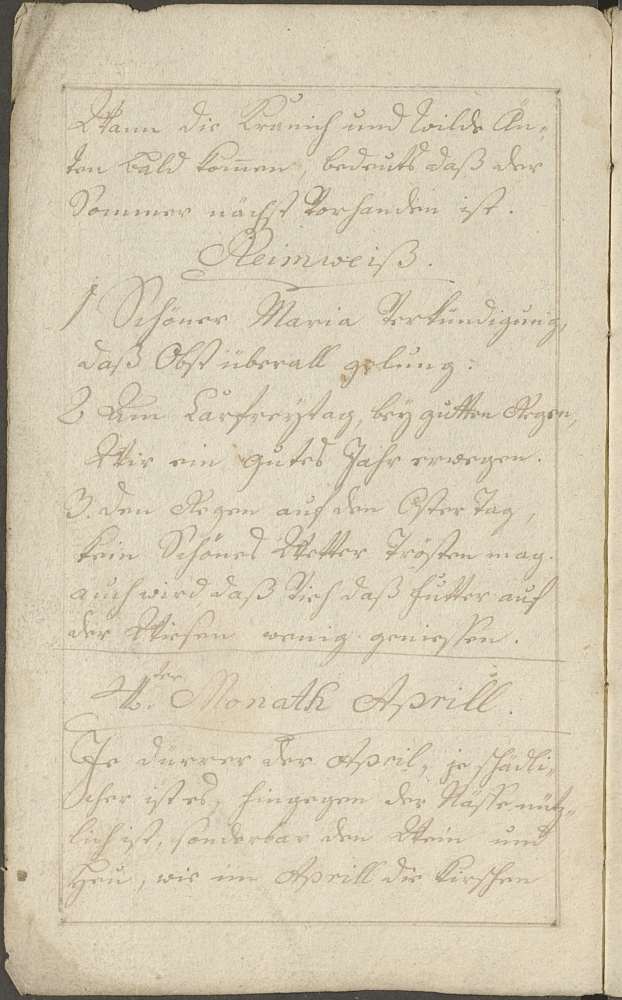 Wann die Kranich und wilde Än-
ten bald kom̅en, bedeuts daß der
Sommer nächst Vorhanden ist.
Reimweiß.
1 Schöner Maria Verkündigung,
daß Obst überall gelung:
2 Am Carfreytag, bey gutten Regen,
Wir ein gutes Jahr erwegen.
3. den Regen auf den Oster Tag,
kein Schönes Wetter Trösten mag.
auch wird daß Vieh daß futter auf
der Wiesen wenig geniessen.
4.ter Monath Aprill.
Je dürrer der Apeil, je schädli-
cher ist es, hingegen der Nässe nütz-
lich ist, sonderbar den Wein und
Heu, wie im Aprill die Kirschen